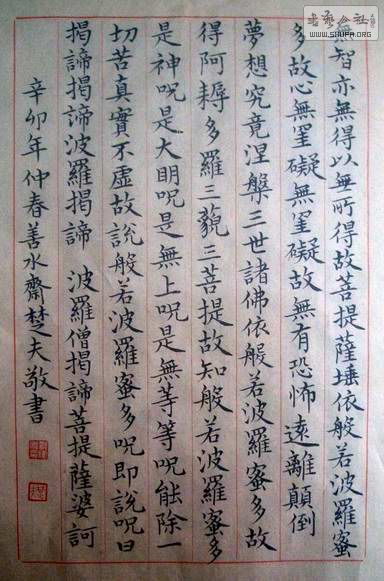 無智亦無得以無所得故菩提薩埵依般若波羅蜜
多故心無罣礙無罣礙故無有恐怖遠離顛倒
夢想究竟涅槃三世諸佛依般若波羅蜜多故
得阿耨多羅三藐三菩提故知般若波羅蜜多
是神呪是大明呪是無上呪是無等等呪能除一
切苦真實不虛故說般若波羅蜜多呪即說呪曰
揭諦揭諦波羅揭諦 波羅僧揭諦菩提薩婆訶
辛卯年仲春善水齋楚夫敬書
书艺公社
WWW.SHUFA.ORG